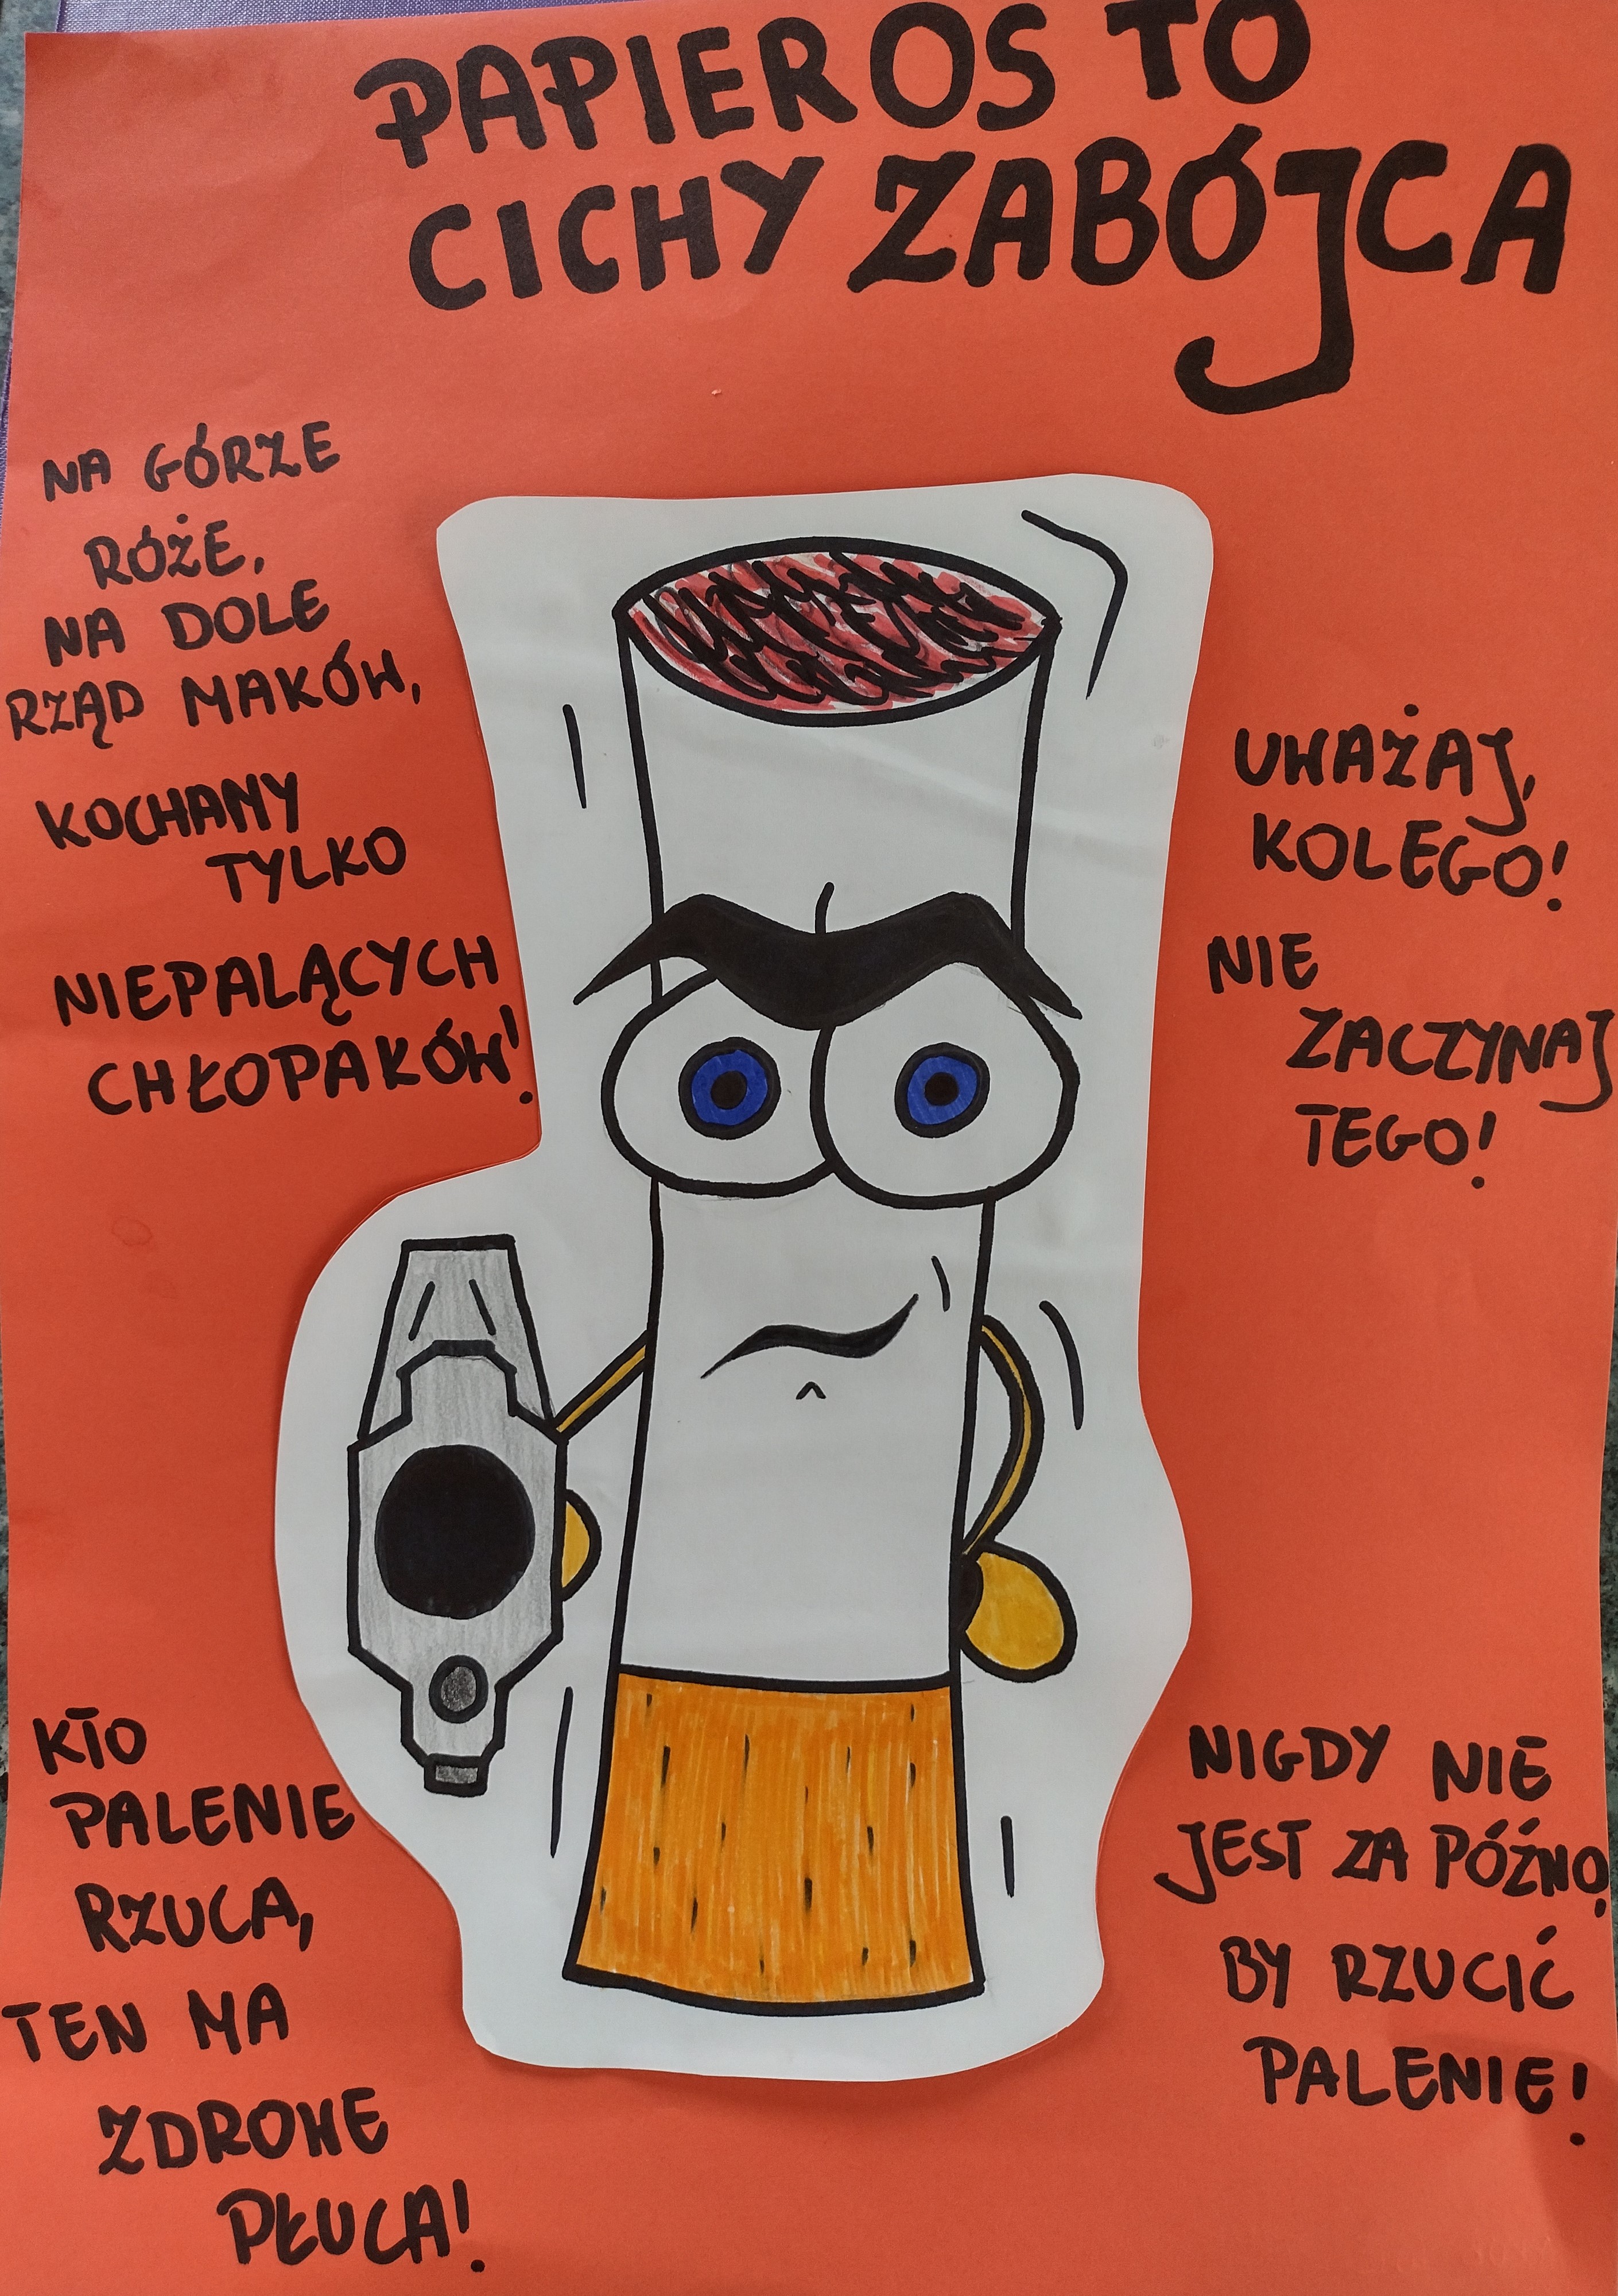 PAPIEROS TO
CICHY ZABÓJCA
NA GÓRZE
RÓŻE,
NA DOLE
RZĄD MAKÓW,
KOCHAMY
TYLKO
NIEPALĄCYCH
CHŁOPAKÓW!
UWAŻAJ,
KOLEGO!
NIE
ZACZYNAJ
TEGO!
KTO
PALENIE
RZUCA,
TEN MA
ZDROWE
PŁUCA!
NIGDY NIE
JEST ZA PÓŹNO,
BY RZUCIĆ
PALENIE!